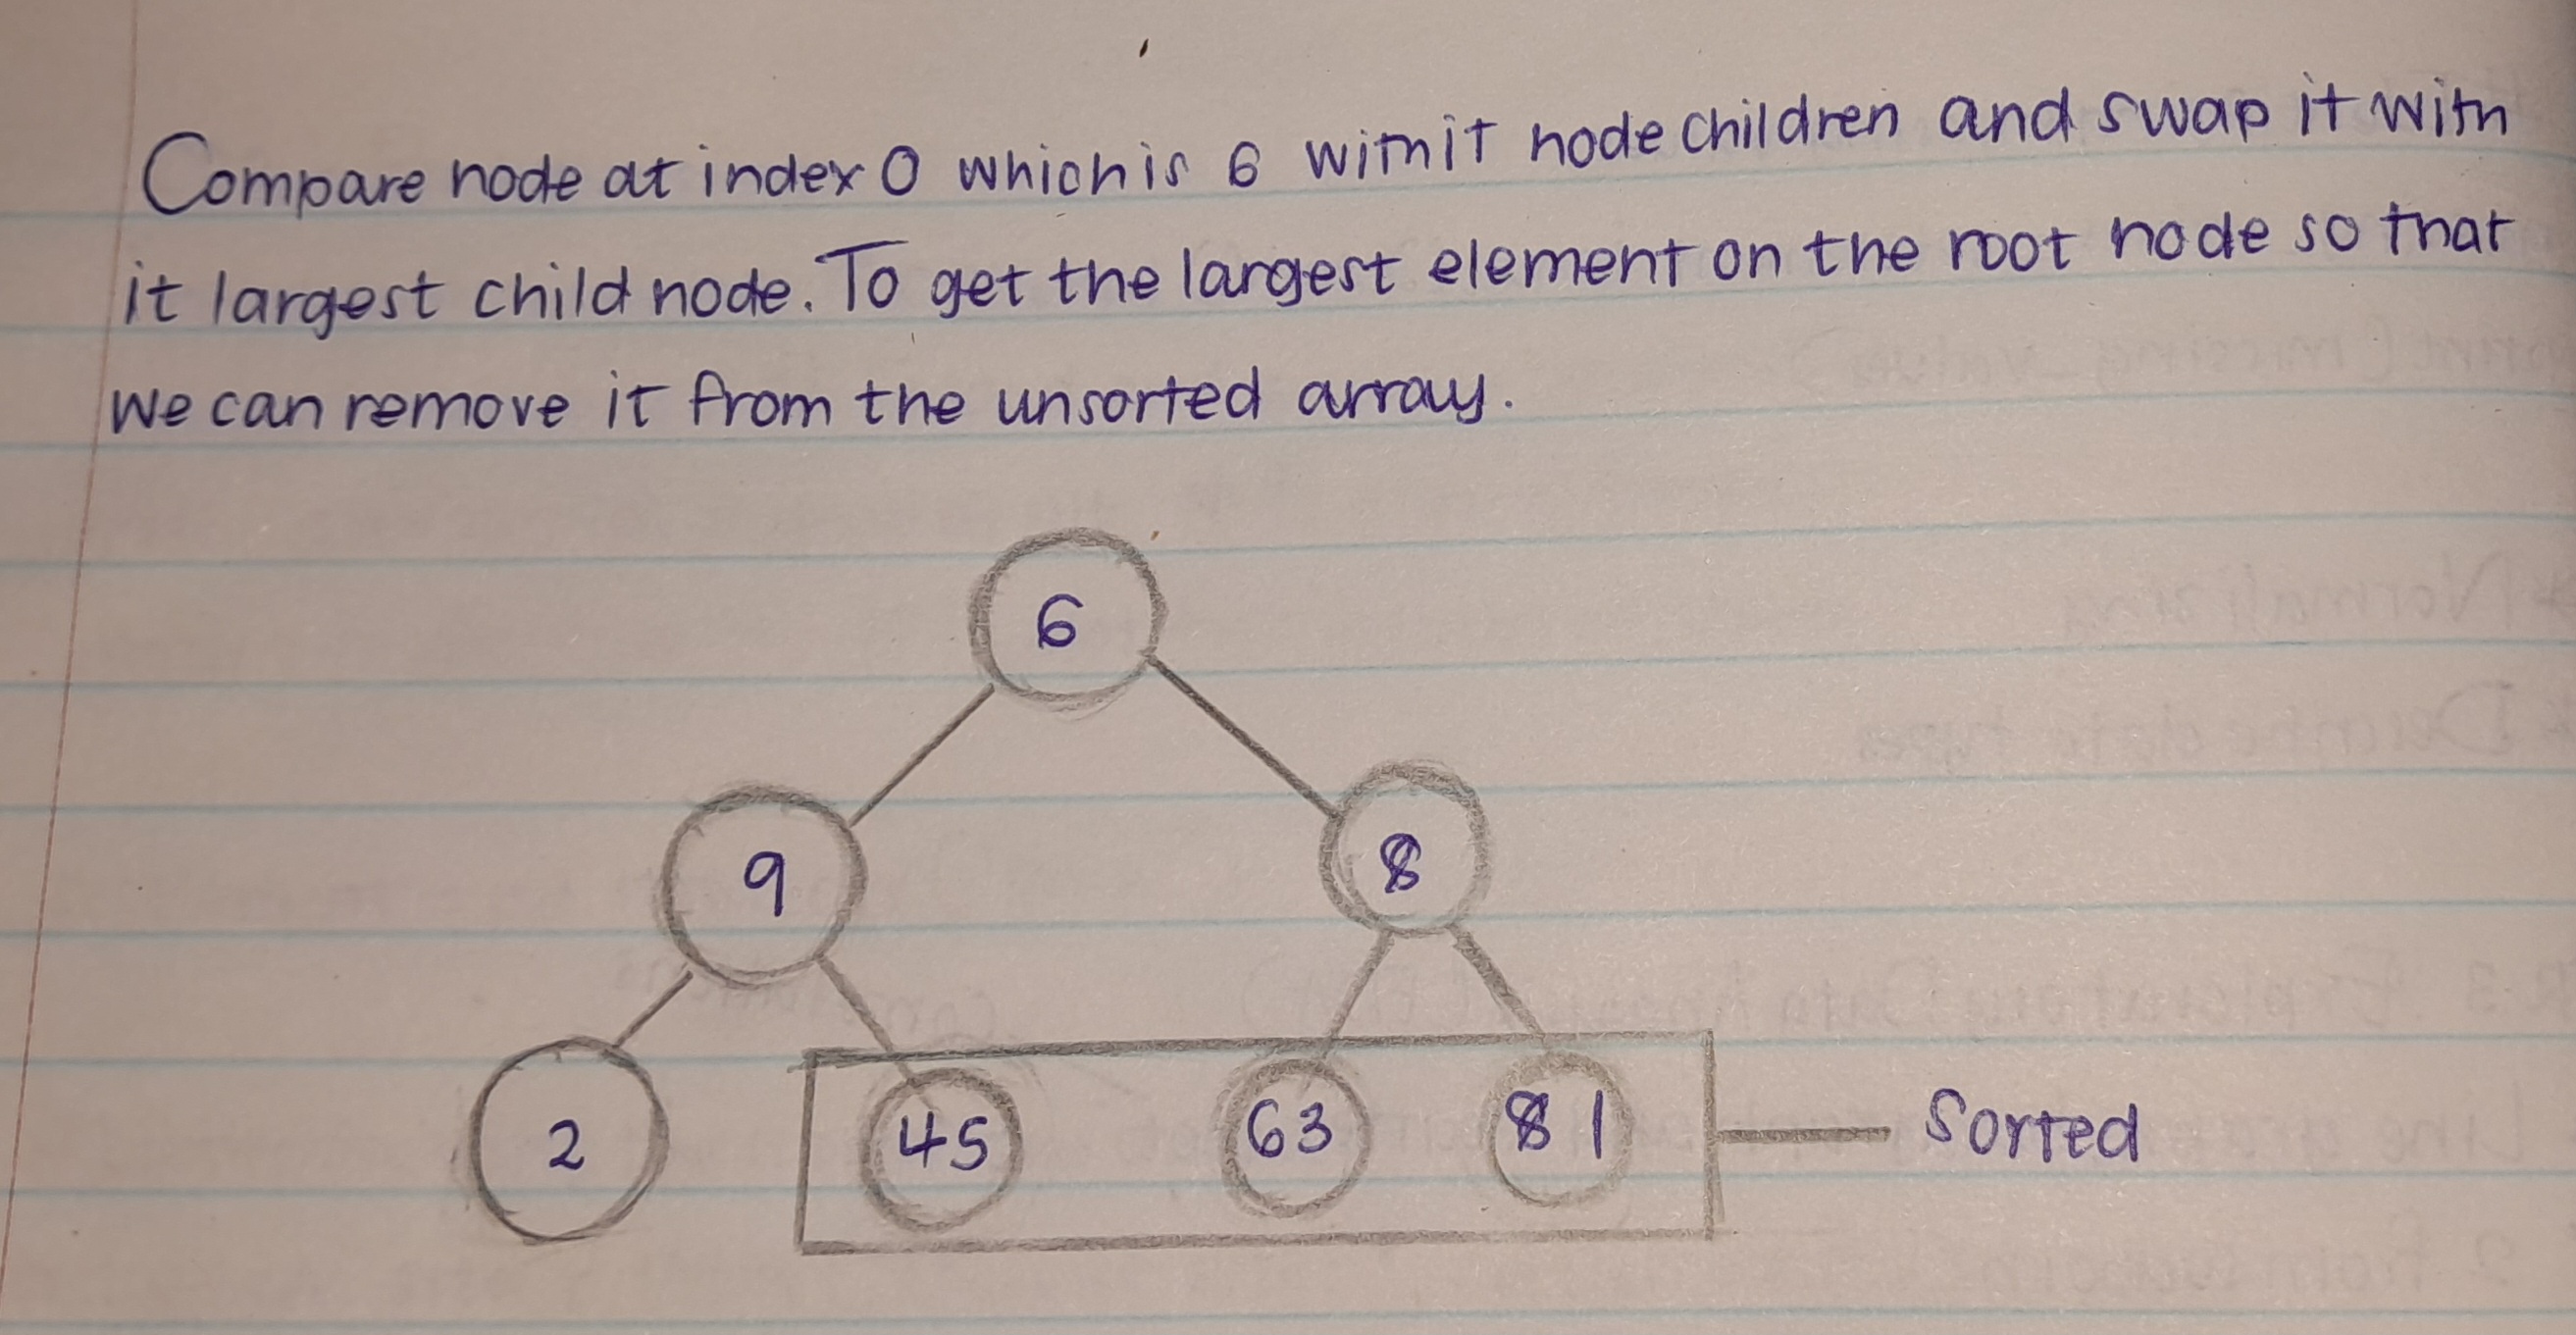 Compare node at index 0 which is 6 with it node children and swap it with
it largest child node. To get the largest element on the root node so that
we can remove it from the unsorted array.
6
9 8
2 45 63 81 Sorted